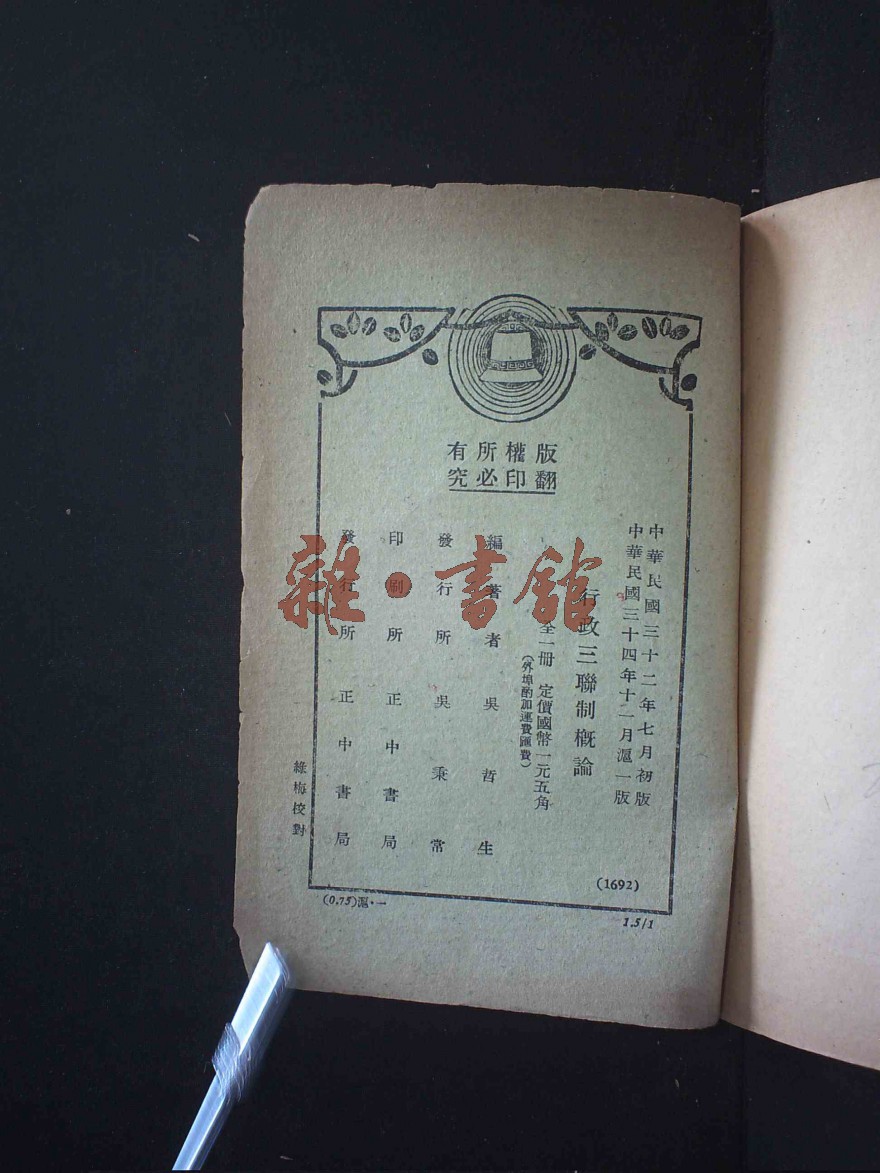 版權所有
翻印必究
中華民國三十二年七月初版
中華民國三十四年十一月滬一版
行政三聯制概論
全一册 定價國幣一元五角
(外埠酌加運費匯費)
編著者 吳哲生
發行所 吳秉常
印刷所 正中書局
發行所 正中書局
綠梅校對
(1692)
(0.75)滬·一
1.5/1
雜·書館